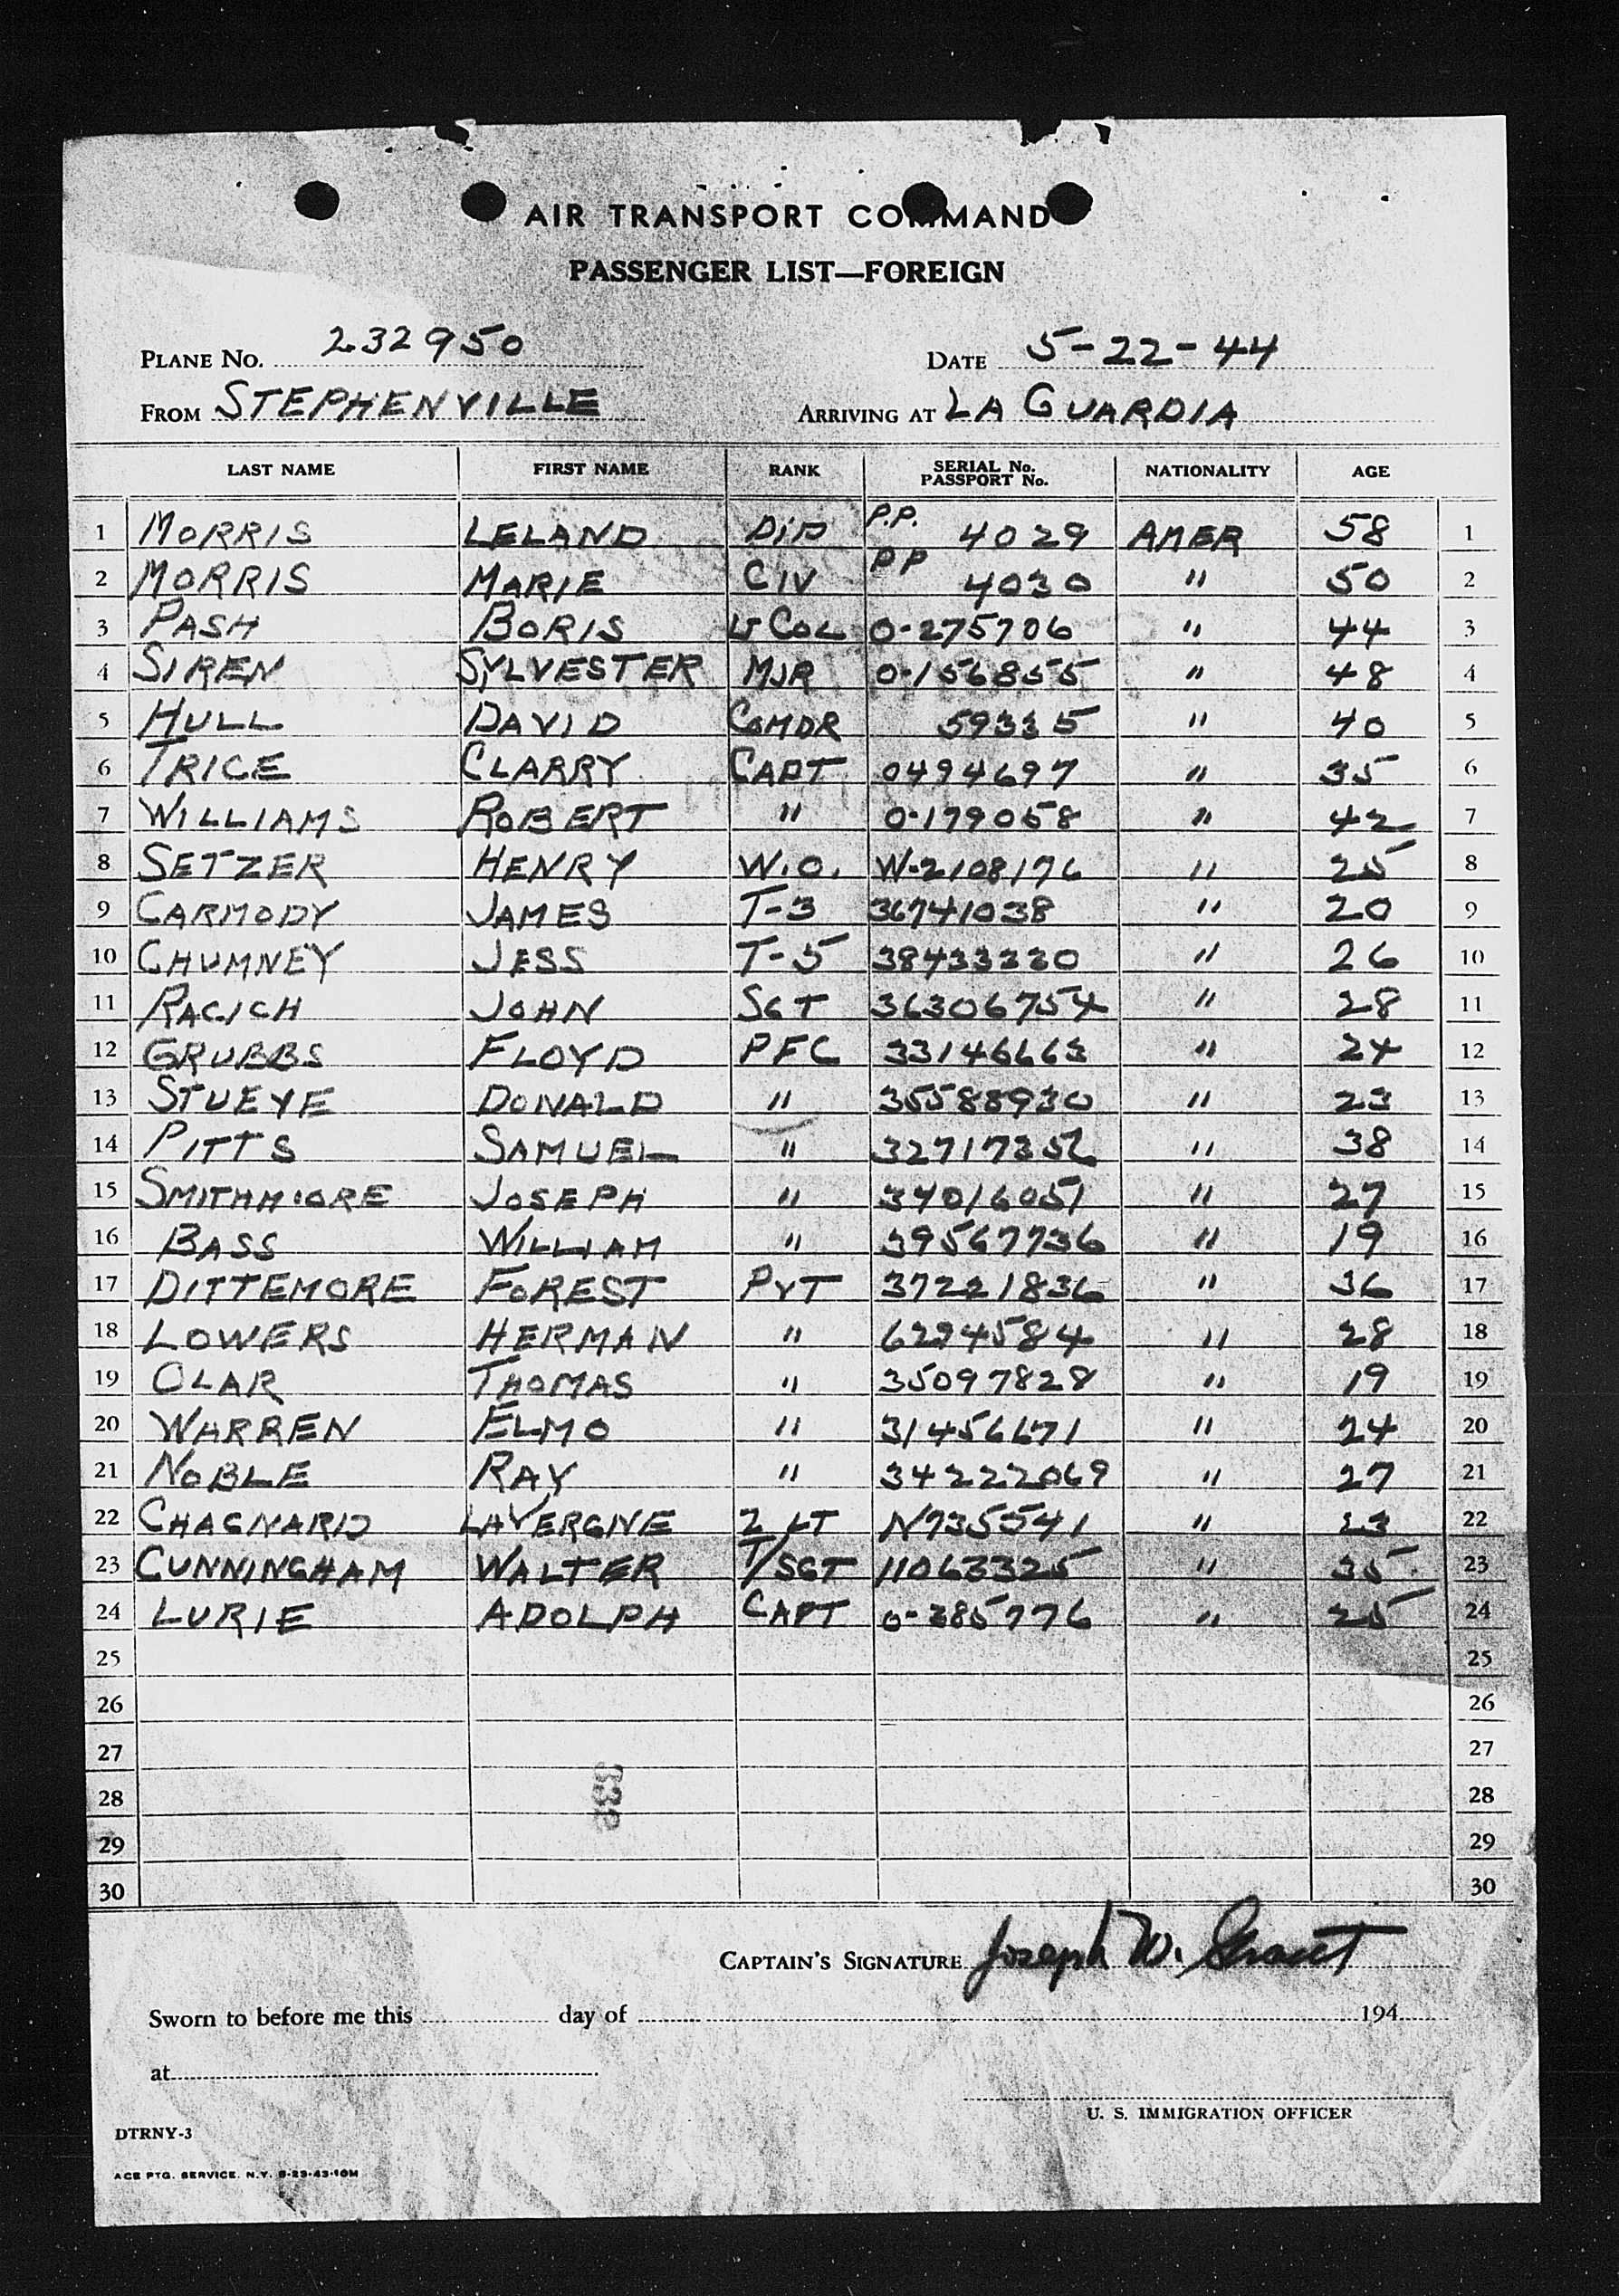 AIR TRANSPORT COMMAND
PASSENGER LIST—FOREIGN
PLANE No. 232950 DATE 5-22-44
FROM STEPHENVILLE ARRIVING AT LA GUARDIA
LAST NAME FIRST NAME RANK SERIAL No. PASSPORT No. NATIONALITY AGE
1 MORRIS LELAND DIP P.P. 4029 AMER 58 1
2 MORRIS MARIE CIV PP 4030 " 50 2
3 PASH BORIS LT COL 0-275706 " 44 3
4 SIREN SYLVESTER MJR 0-156855 " 48 4
5 HULL DAVID COMDR 59335 " 40 5
6 TRICE CLARRY CAPT 0494697 " 35 6
7 WILLIAMS ROBERT " 0-179058 " 42 7
8 SETZER HENRY W.O. W-2108176 " 25 8
9 CARMODY JAMES T-3 36741038 " 20 9
10 CHUMNEY JESS T-5 38433220 " 26 10
11 RACICH JOHN SGT 36306754 " 28 11
12 GRUBBS FLOYD PFC 33146663 " 24 12
13 STUEYE DONALD " 35588930 " 23 13
14 PITTS SAMUEL " 32717352 " 38 14
15 SMITHMORE JOSEPH " 34016051 " 27 15
16 BASS WILLIAM " 39567736 " 19 16
17 DITTEMORE FOREST PVT 37221836 " 36 17
18 LOWERS HERMAN " 6294584 " 28 18
19 OLAR THOMAS " 35097828 " 19 19
20 WARREN ELMO " 31456671 " 24 20
21 NOBLE RAY " 34222069 " 27 21
22 CHAGNARD LAVERGNE 2 LT N735541 " 23 22
23 CUNNINGHAM WALTER T/SGT 11063325 " 35 23
24 LURIE ADOLPH CAPT 0-385776 " 25 24
25 25
26 26
27 27
28 332 28
29 29
30 30
CAPTAIN'S SIGNATURE Joseph W. Grant
Sworn to before me this day of 194
at
U. S. IMMIGRATION OFFICER
DTRNY-3
ACE PTG. SERVICE. N.Y. 8-23-43-10M